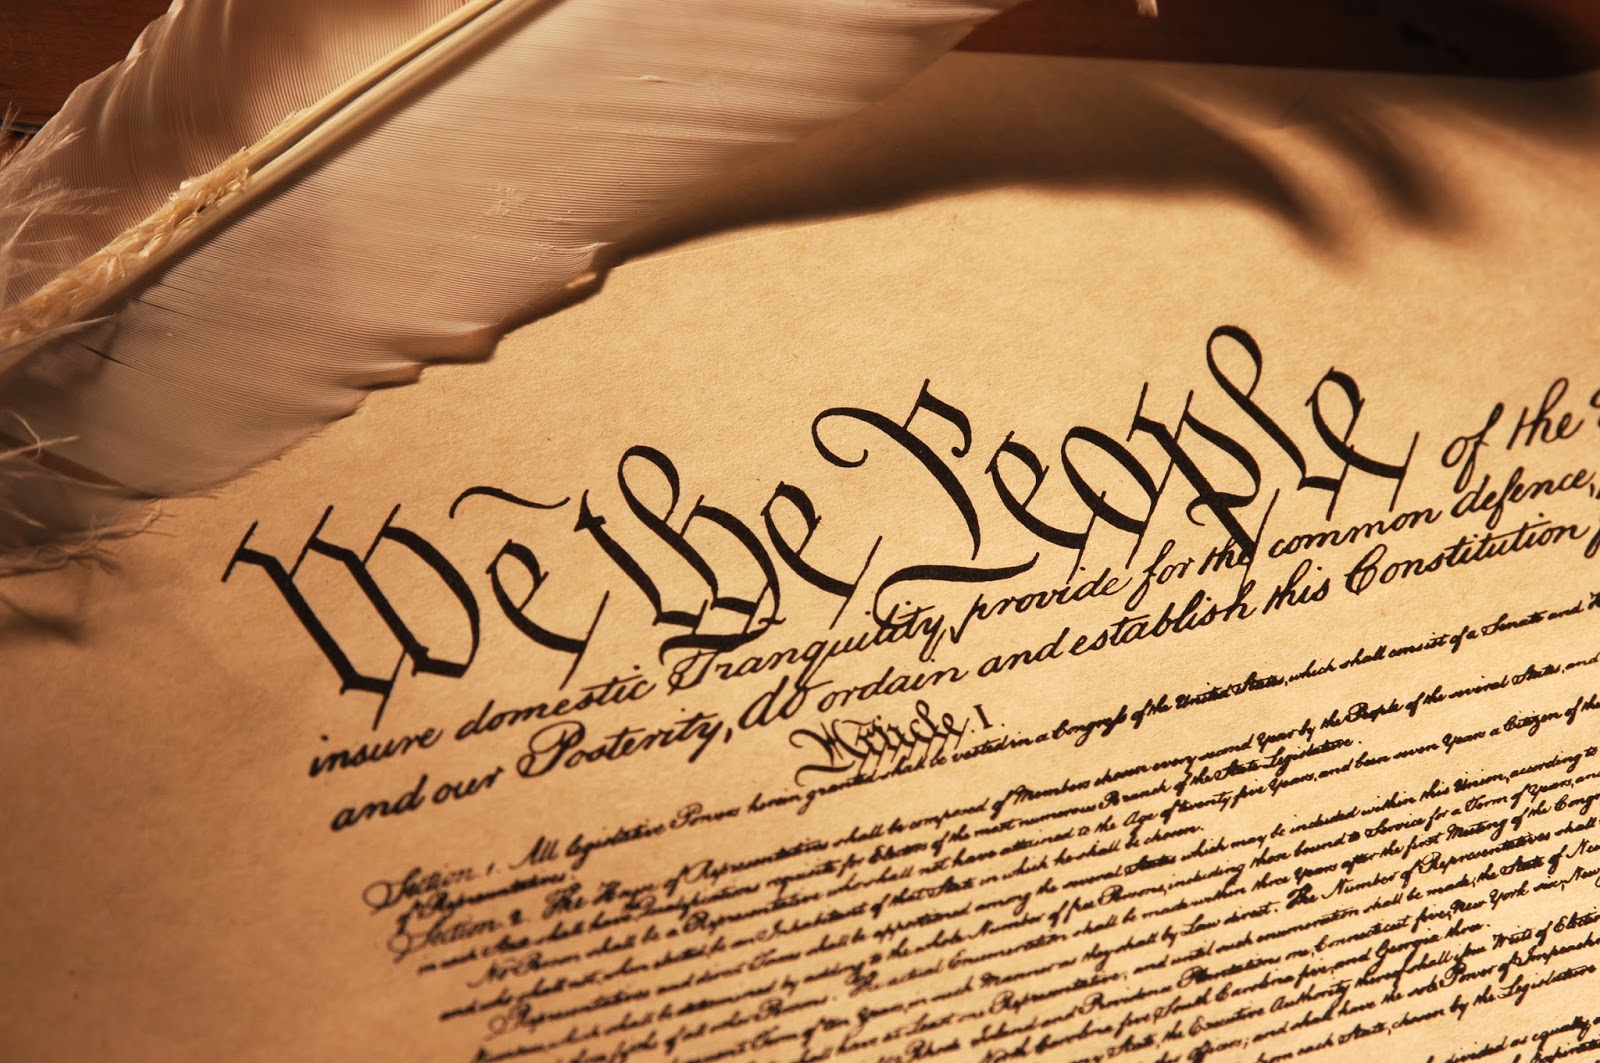 We the People of the
insure domestic Tranquility, provide for the common defence,
and our Posterity, do ordain and establish this Constitution
Article. I.
Section. 1. All legislative Powers herein granted shall be vested in a Congress of the United States, which shall consist of a Senate and
of Representatives.
Section. 2. The House of Representatives shall be composed of Members chosen every second Year by the People of the several States, and
in each State shall have Qualifications requisite for Electors of the most numerous Branch of the State Legislature.
No Person shall be a Representative who shall not have attained to the Age of twenty five Years, and been seven Years a Citizen of the
and who shall not, when elected, be an Inhabitant of that State in which he shall be chosen.
Representatives and direct Taxes shall be apportioned among the several States which may be included within this Union, according to
which shall be determined by adding to the whole Number of free Persons, including those bound to Service for a Term of Years, and
of all other Persons. The actual Enumeration shall be made within three Years after the first Meeting of the
Term of ten Years, in such Manner as they shall by Law direct. The Number of Representatives shall
shall have at Least one Representative; and until such enumeration shall be made, the State of New
Rhode Island and Providence Plantations one, Connecticut five, New York six, New
North Carolina five, South Carolina five, and Georgia three.
State, the Executive Authority thereof shall issue Writs of
other Officers; and shall have the sole Power of
from each State, chosen by the Legislature
divided as equally as